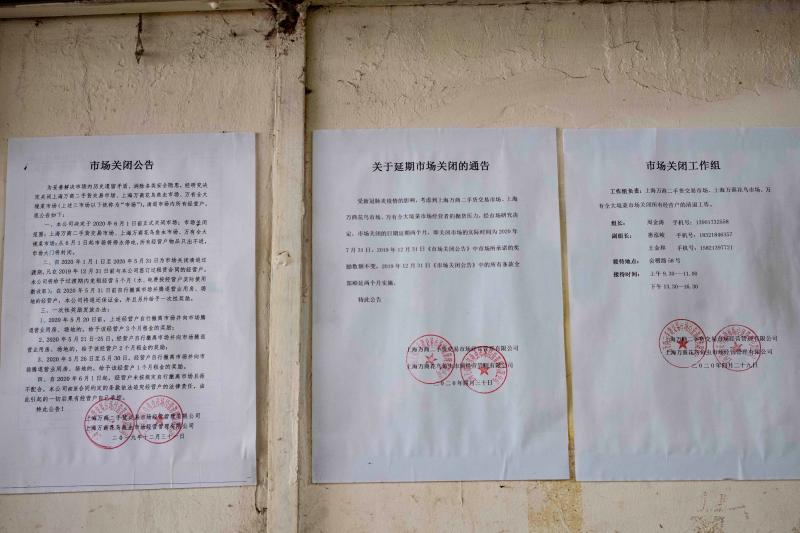 市场关闭公告
为妥善解决市场的历史遗留矛盾，消除各类安全隐患，经研究决
定关闭上海万商二手货交易市场、上海万商花鸟鱼虫市场、万有全大
境菜市场（上述三市场以下统称为“市场”），清退市场内所有经营户，
现公告如下：
一、本公司决定于2020年6月1日前正式关闭市场；市场盖闭
范围：上海万商二手货交易市场、上海万商花鸟鱼水市场、万有全大
境菜市场；
市场大门将封闭。
二、自2020年1月1日至2020年5月31日为市场关闭清退过
渡期，凡在2019年12月31日前与本公司签订过租赁合同的经营户，
三、一次性奖励发放办法：
1、2020年5月20日前，上述经营户自行撤离市场并向市场腾
退营业用房、场地的，给予该经营户3个月租金的奖励；
2、2020年5月21日-25日，经营户自行撤离市场并向市场腾退营
业用房、场地的，给予该经营户2个月租金的奖励；
3、2020年5月26日至5月30日，经营户自行撤离市场并向市
场腾退营业用房、场地的，给予该经营户1个月租金的奖励。
四、自2020年6月1日起，经营户未按规定自行撤离市场且拒
特此公告！
上海万商二手货交易市场经营管理有限公司
上海万商花鸟鱼虫市场经营管理有限公司
二〇一九年十二月三十一日
关于延期市场关闭的通告
受新冠肺炎疫情的影响，考虑到上海万商二手货交易市场、上海
万商花鸟市场、万有全大境菜市场经营者的抛货压力，经市场研究决
定，市场关闭的日期延期两个月，即关闭市场的实际时间为2020年
7月31日，2019年12月31日《市场关闭公告》中市场所承诺的奖
励数额不变，2019年12月31日《市场关闭公告》中的所有条款全
部顺延两个月实施。
特此公告
上海万商二手货交易市场经营管理有限公司
上海万商花鸟鱼虫市场经营管理有限公司
二〇二〇年四月三十日
市场关闭工作组
工作组负责：上海万商二手货交易市场、上海万商花鸟市场、万
有全大境菜市场关闭所有经营户的清退工作。
组长： 周金涛 手机号：13901732558
副组长： 手机号：18321846357
王金和 手机号：15821397721
接待地点： 会稽路58号
接待时间： 上午9.30—11.00
下午13.30—16.30
上海万商二手货交易市场经营管理有限公司
上海万商花鸟鱼虫市场经营管理有限公司
二〇二〇年四月二十九日